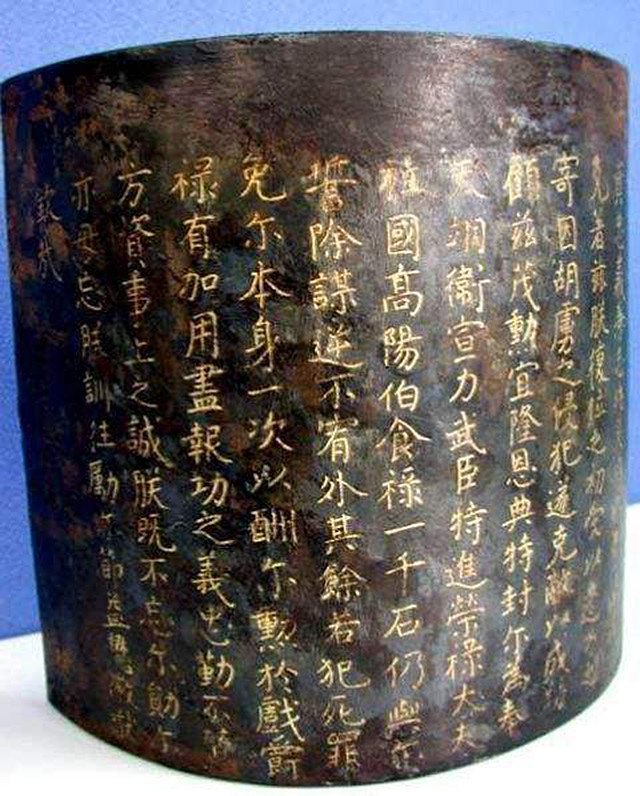 克者茲朕復位之初受以邊
寄因胡虜之侵犯遂克敵以成功
顧茲茂勳宜隆恩典特封尔為奉
天翊衛宣力武臣特進榮祿大夫
柱國高陽伯食祿一千石仍與尔
誓除謀逆不宥外其餘若犯死罪
免尔本身一次以酬尔勳於戲爵
祿有加用盡報功之義忠勤不
方資事上之誠朕既不忘尔勳尔
亦毋忘朕訓往勵尔節益懋厥猷
欽哉